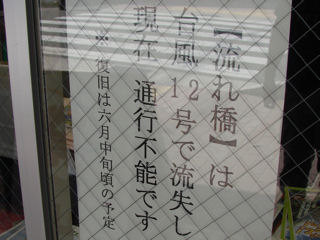 【流れ橋】は
台風12号で流失し
現在 通行不能です
※ 復旧は六月中旬頃の予定